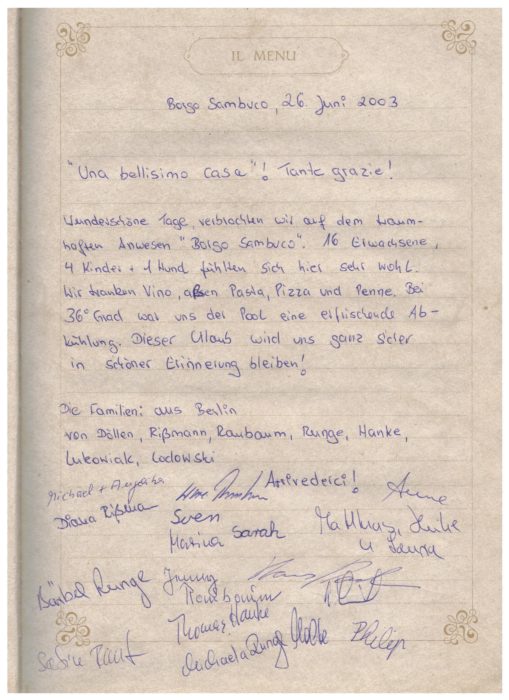 IL MENU
Borgo Sambuco, 26. Juni 2003
"Una bellisimo casa"! Tante grazie!
Wunderschöne Tage, verbrachten wir auf dem traum-
haften Anwesen "Borgo Sambuco". 16 Erwachsene,
4 Kinder + 1 Hund fühlten sich hier sehr wohl.
Wir tranken Vino, aßen Pasta, Pizza und Penne. Bei
36° Grad war uns der Pool eine erfrischende Ab-
kühlung. Dieser Urlaub wird uns ganz sicher
in schöner Erinnerung bleiben!
Die Familien: aus Berlin
von Döllen, Rißmann, Raubaum, Runge, Hanke,
Lukowiak, Lodowski
Arrivederci!
Michael + Angelika
Anne
Diana Rißma
Sven
Marina Sarah
Matthias, Heike
u Laura
Bärbel Runge
Jimmy
Thomas Hanke
Michaela Runge
Philip